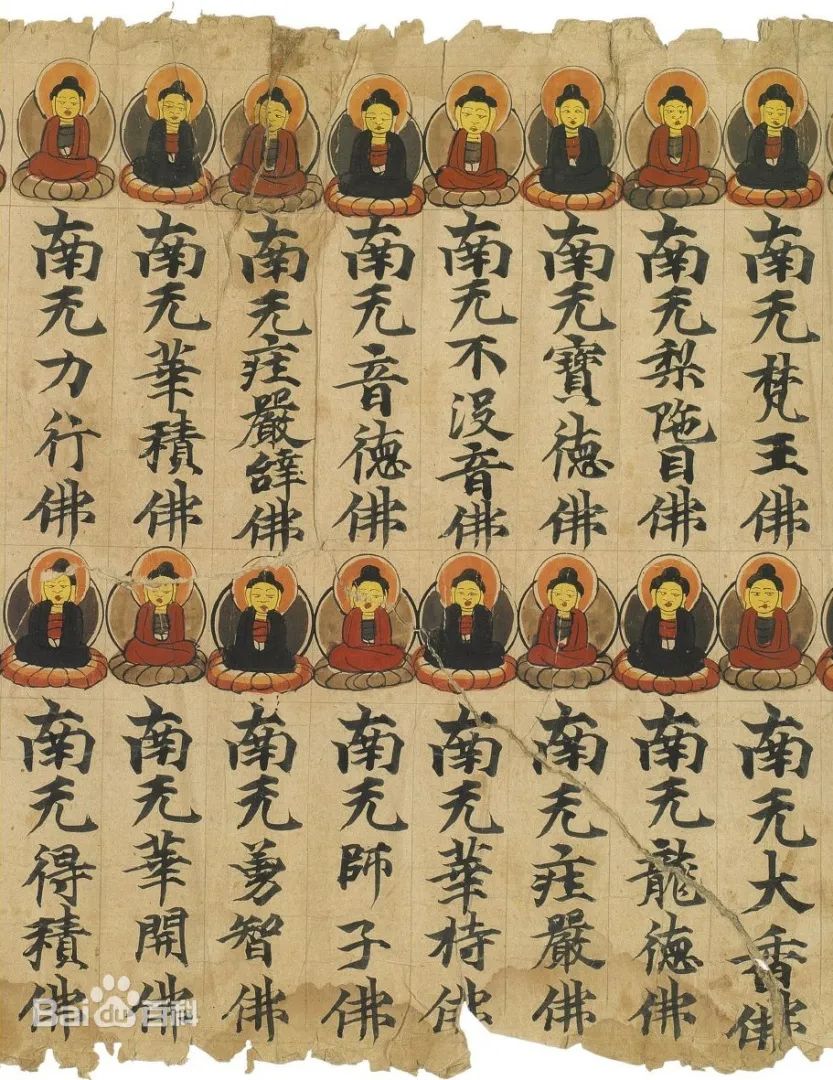 南无梵王佛
南无梨陁目佛
南无寶德佛
南无不没音佛
南无音德佛
南无莊嚴辝佛
南无華積佛
南无力行佛
南无大香佛
南无龍德佛
南无莊嚴佛
南无華持佛
南无師子佛
南无勇智佛
南无華開佛
南无得積佛
Baidu百科